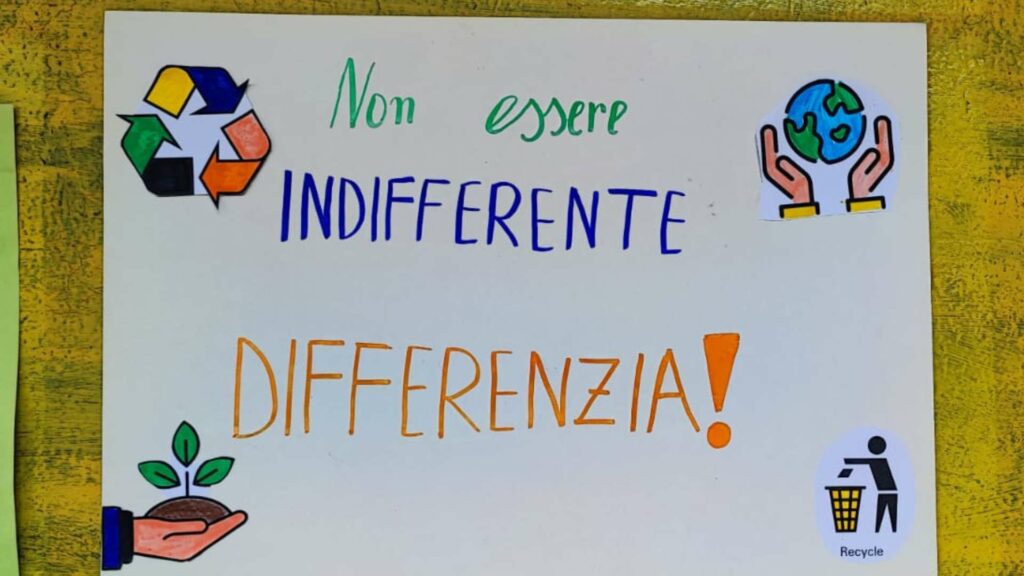 Non essere
INDIFFERENTE
DIFFERENZIA!
Recycle